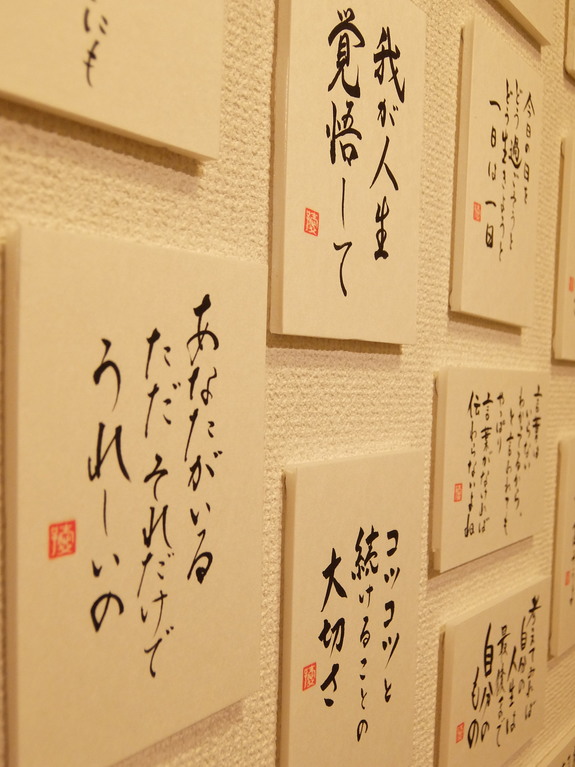 にも
我が人生
覚悟して
今日の日を
どう過ごそうと
どう生きようと
一日は一日
あなたがいる
ただそれだけで
うれしいの
コツコツと
続けることの
大切さ
言葉は
いらない
わかってるから。
と言われても
やっぱり
言葉がなければ
伝わらないよね
考えてみれば
自分の
人生は
最後まで
自分の
もの